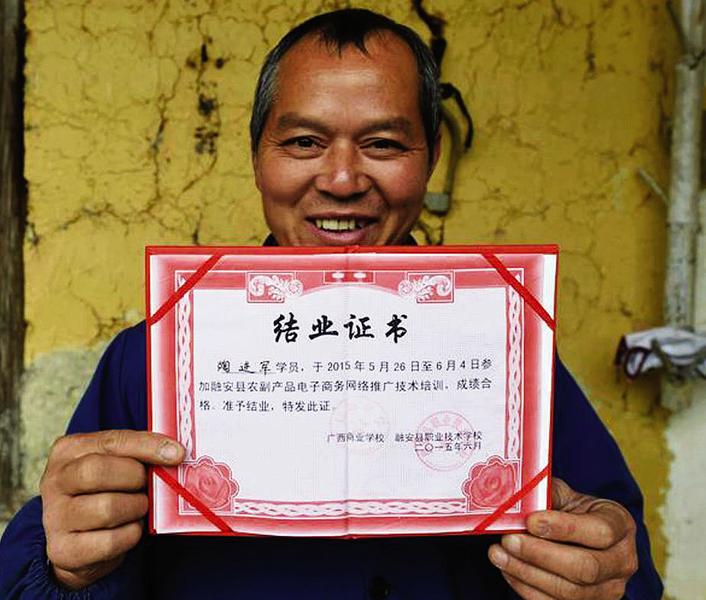 结业证书
陶进军学员，于2015年5月26日至6月4日参
加融安县农副产品电子商务网络推广技术培训，成绩合
格。准予结业，特发此证。
广西商业学校 融安县职业技术学校
二〇一五年六月